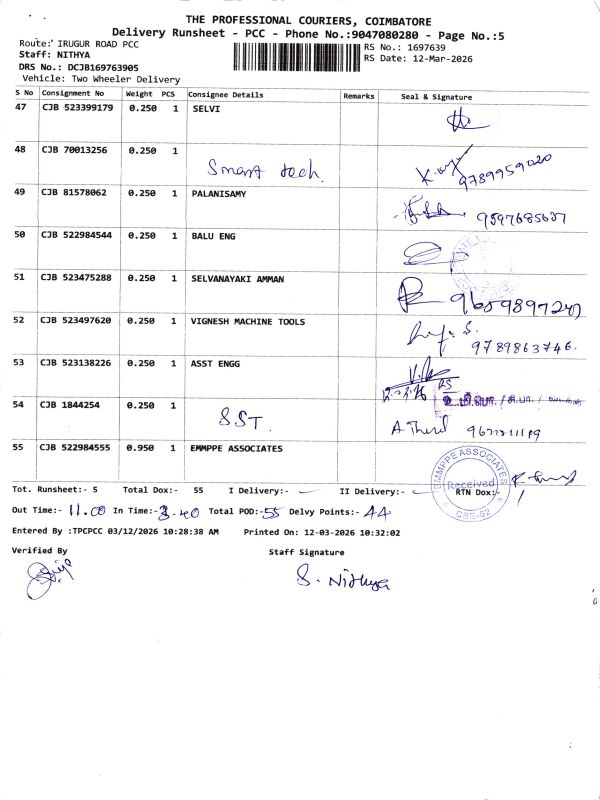 THE PROFESSIONAL COURIERS, COIMBATORE
Delivery Runsheet - PCC - Phone No.:9047080280 - Page No.:5
Route: IRUGUR ROAD PCC
Staff: NITHYA
DRS No.: DCJB169763905
Vehicle: Two Wheeler Delivery
RS No.: 1697639
RS Date: 12-Mar-2026
S No Consignment No Weight PCS Consignee Details Remarks Seal & Signature
47 CJB 523399179 0.250 1 SELVI
48 CJB 70013256 0.250 1 Smart tech. 9789959020
49 CJB 81578062 0.250 1 PALANISAMY
50 CJB 522984544 0.250 1 BALU ENG
51 CJB 523475288 0.250 1 SELVANAYAKI AMMAN
52 CJB 523497620 0.250 1 VIGNESH MACHINE TOOLS 9789863746.
53 CJB 523138226 0.250 1 ASST ENGG
54 CJB 1844254 0.250 1 SST.
55 CJB 522984555 0.950 1 EMMPPE ASSOCIATES
EMMPPE ASSOCIATES
Received
CBE-62
Tot. Runsheet:- 5 Total Dox:- 55 I Delivery:- II Delivery:- RTN Dox:-
Out Time:- 11.00 In Time:- 3.40 Total POD:- 55 Delvy Points:- 44
Entered By :TPCPCC 03/12/2026 10:28:38 AM Printed On: 12-03-2026 10:32:02
Verified By Staff Signature
S. Nithya